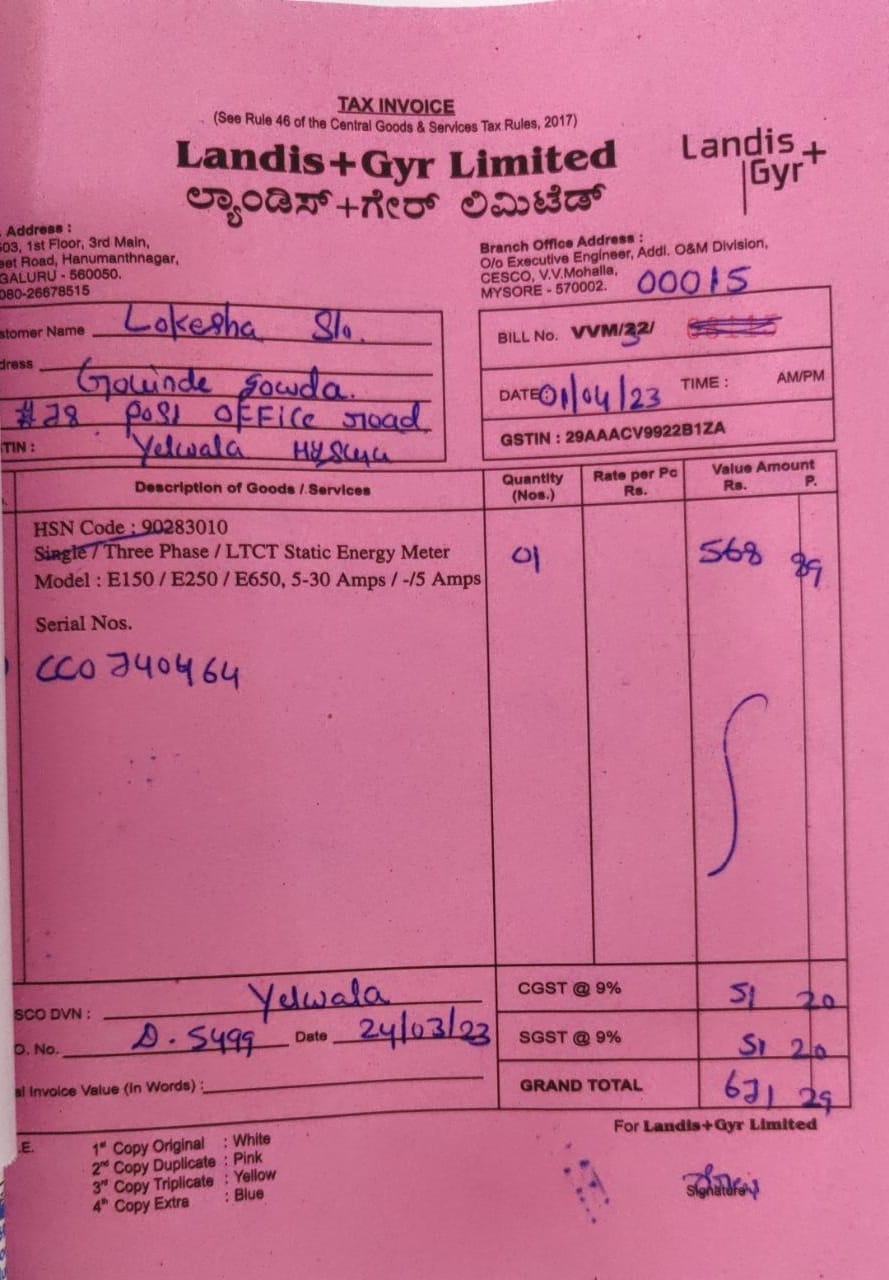 TAX INVOICE
(See Rule 46 of the Central Goods & Services Tax Rules, 2017)
Landis+Gyr Limited
ಲ್ಯಾಂಡಿಸ್ +ಗೇರ್ ಲಿಮಿಟೆಡ್
Landis
Gyr+
Address :
503, 1st Floor, 3rd Main,
eet Road, Hanumanthnagar,
GALURU - 560050.
080-26678515
Branch Office Address :
O/o Executive Engineer, Addl. O&M Division,
CESCO, V.V.Mohalla,
MYSORE - 570002.
00015
stomer Name Lokesha S/o.
dress
Gowinde Gowda.
#28 Post OFFice road
TIN : Yelwala
BILL No. VVM/32/
DATE 01/04/23 TIME : AM/PM
GSTIN : 29AAACV9922B1ZA
Description of Goods / Services
Quantity (Nos.)
Rate per Pc Rs.
Value Amount
Rs. P.
HSN Code : 90283010
Single / Three Phase / LTCT Static Energy Meter
01 568 89
Model : E150 / E250 / E650, 5-30 Amps / -/5 Amps
Serial Nos.
CCO740464
SCO DVN : Yelwala
O. No. D. 5499 Date 24/03/23
al Invoice Value (In Words) :
CGST @ 9% 51 20
SGST @ 9% 51 20
GRAND TOTAL 671 29
.E.
1st Copy Original : White
2nd Copy Duplicate : Pink
3rd Copy Triplicate : Yellow
4th Copy Extra : Blue
For Landis+Gyr Limited
Signature